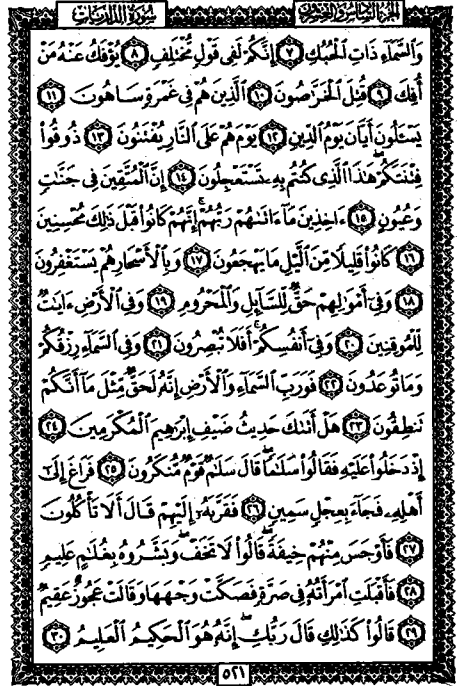 الجزء السادس والعشرون
سورة الذاريات
وَالسَّمَاءِ ذَاتِ الْحُبُكِ ٧ إِنَّكُمْ لَفِي قَوْلٍ مُّخْتَلِفٍ ٨ يُؤْفَكُ عَنْهُ مَنْ
أُفِكَ ٩ قُتِلَ الْخَرَّاصُونَ ١٠ الَّذِينَ هُمْ فِي غَمْرَةٍ سَاهُونَ ١١
يَسْـَٔلُونَ أَيَّانَ يَوْمُ الدِّينِ ١٢ يَوْمَ هُمْ عَلَى النَّارِ يُفْتَنُونَ ١٣ ذُوقُوا
فِتْنَتَكُمْ هَٰذَا الَّذِي كُنتُم بِهِ تَسْتَعْجِلُونَ ١٤ إِنَّ الْمُتَّقِينَ فِي جَنَّٰتٍ
وَعُيُونٍ ١٥ ءَاخِذِينَ مَا ءَاتَىٰهُمْ رَبُّهُمْ إِنَّهُمْ كَانُوا قَبْلَ ذَٰلِكَ مُحْسِنِينَ
١٦ كَانُوا قَلِيلًا مِّنَ اللَّيْلِ مَا يَهْجَعُونَ ١٧ وَبِالْأَسْحَارِ هُمْ يَسْتَغْفِرُونَ
١٨ وَفِي أَمْوَٰلِهِمْ حَقٌّ لِّلسَّائِلِ وَالْمَحْرُومِ ١٩ وَفِي الْأَرْضِ ءَايَٰتٌ
لِّلْمُوقِنِينَ ٢٠ وَفِي أَنفُسِكُمْ أَفَلَا تُبْصِرُونَ ٢١ وَفِي السَّمَاءِ رِزْقُكُمْ
وَمَا تُوعَدُونَ ٢٢ فَوَرَبِّ السَّمَاءِ وَالْأَرْضِ إِنَّهُ لَحَقٌّ مِّثْلَ مَا أَنَّكُمْ
تَنطِقُونَ ٢٣ هَلْ أَتَىٰكَ حَدِيثُ ضَيْفِ إِبْرَٰهِيمَ الْمُكْرَمِينَ ٢٤
إِذْ دَخَلُوا عَلَيْهِ فَقَالُوا سَلَٰمًا قَالَ سَلَٰمٌ قَوْمٌ مُّنكَرُونَ ٢٥ فَرَاغَ إِلَىٰ
أَهْلِهِ فَجَاءَ بِعِجْلٍ سَمِينٍ ٢٦ فَقَرَّبَهُ إِلَيْهِمْ قَالَ أَلَا تَأْكُلُونَ
٢٧ فَأَوْجَسَ مِنْهُمْ خِيفَةً قَالُوا لَا تَخَفْ وَبَشَّرُوهُ بِغُلَٰمٍ عَلِيمٍ
٢٨ فَأَقْبَلَتِ امْرَأَتُهُ فِي صَرَّةٍ فَصَكَّتْ وَجْهَهَا وَقَالَتْ عَجُوزٌ عَقِيمٌ
٢٩ قَالُوا كَذَٰلِكِ قَالَ رَبُّكِ إِنَّهُ هُوَ الْحَكِيمُ الْعَلِيمُ ٣٠
٥٢١